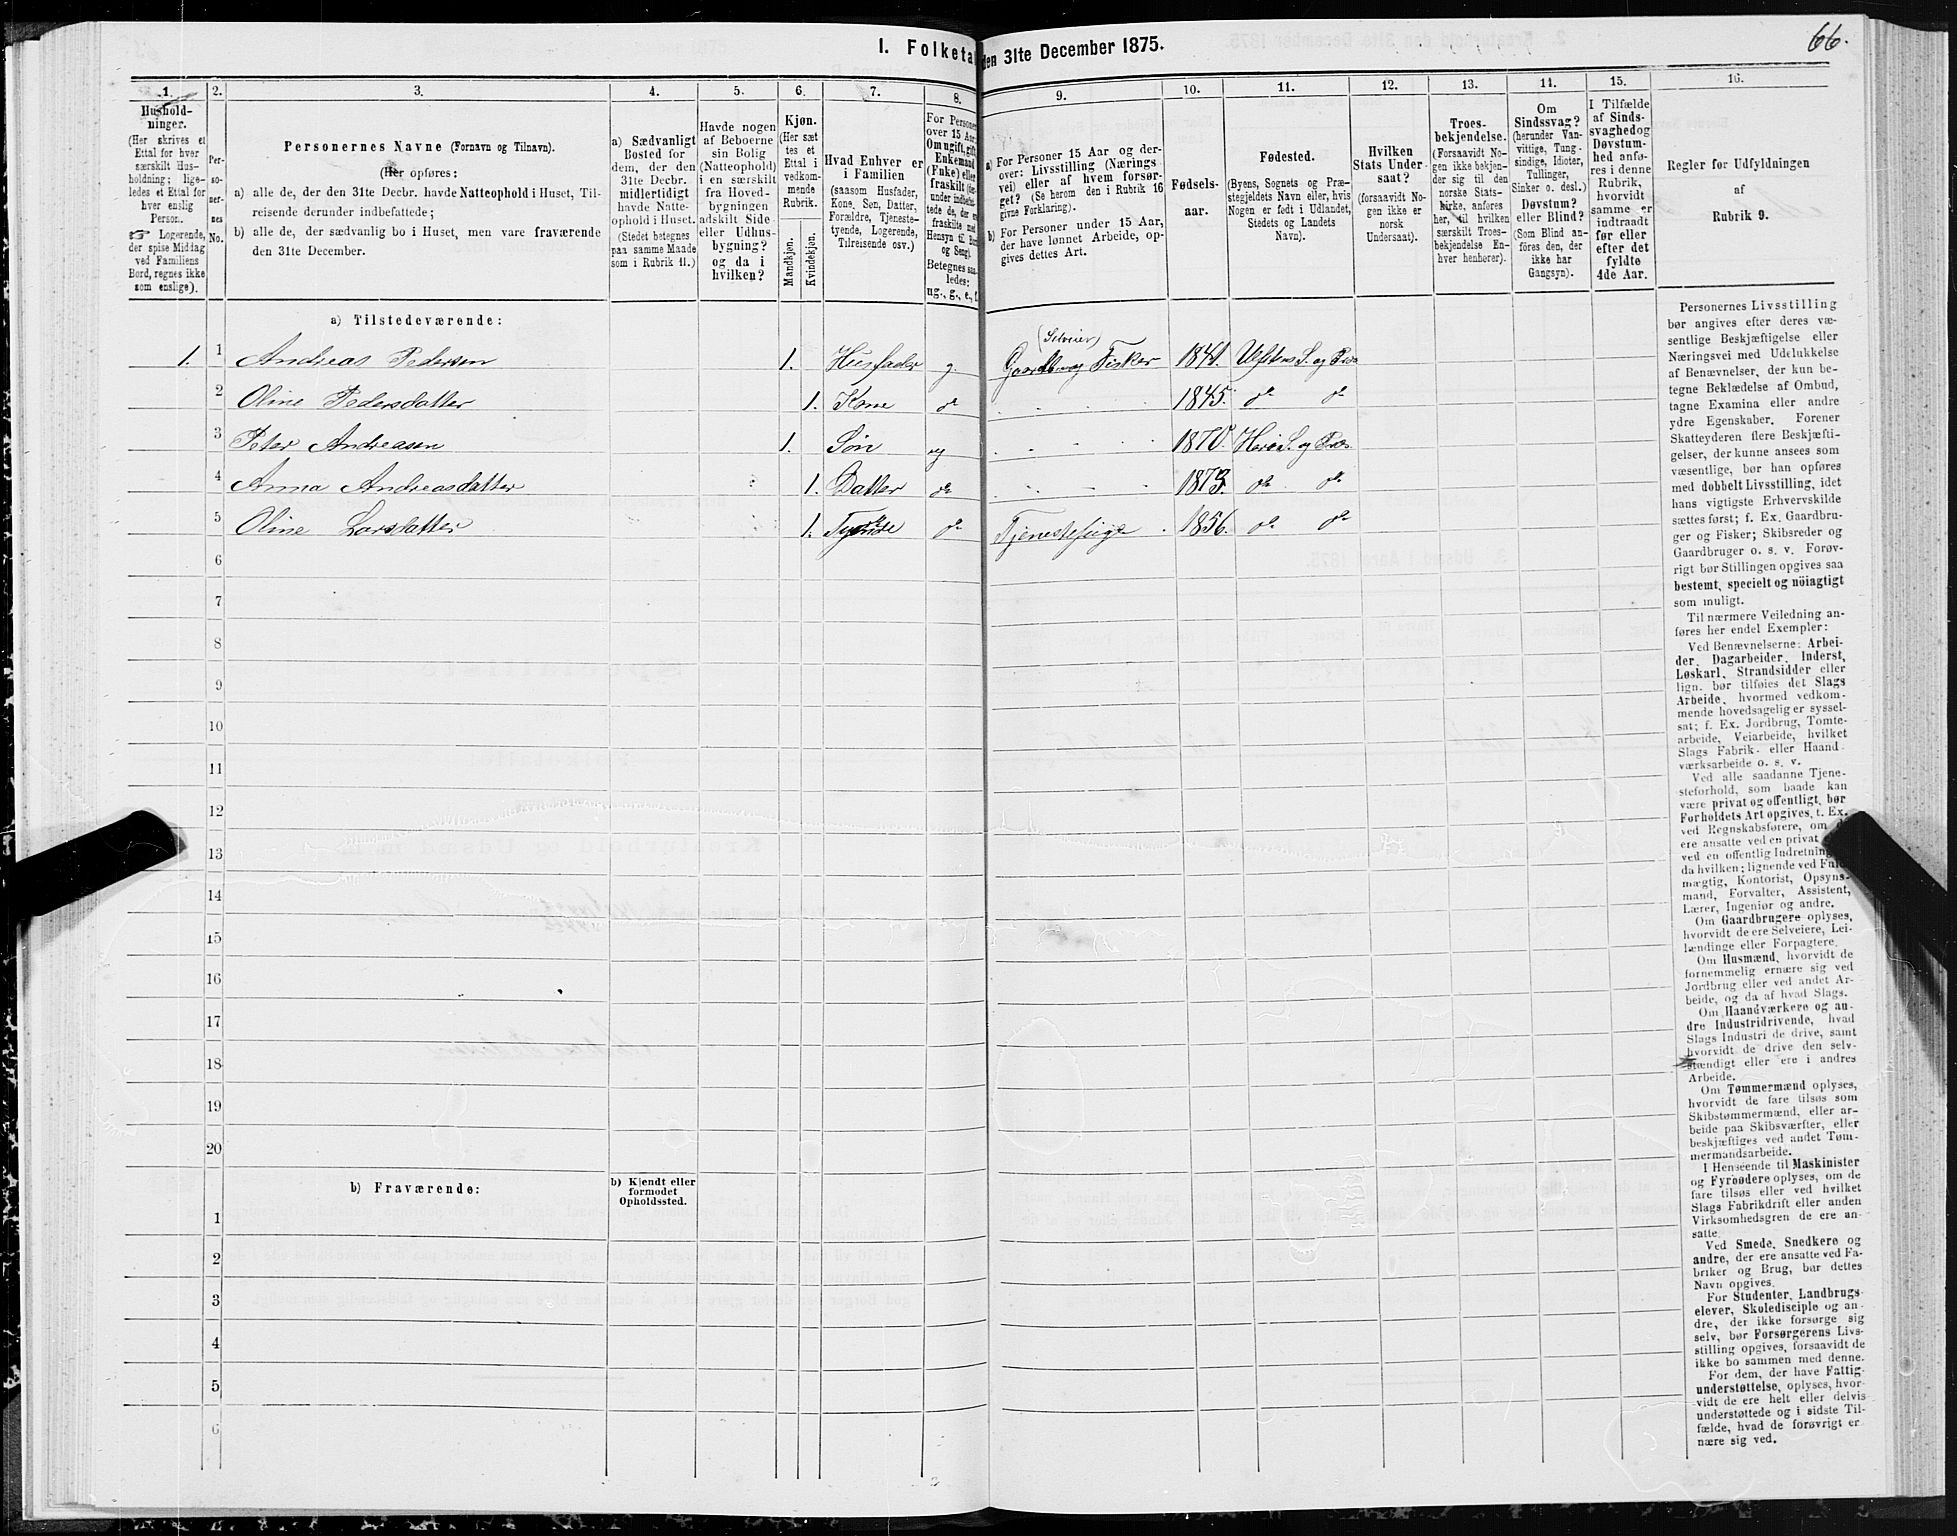 66.
I. Folketal den 31te December 1875.
1. 2. 3. 4. 5. 6. 7. 8. 9. 10. 11. 12. 13. 14. 15. 16.
Hushold-
ninger.
(Her skrives et
Ettal for hver
særskilt Hus-
holdning; lige-
ledes et Ettal for
hver enslig
Person.
☞ Logerende,
der spise Middag
ved Familiens
Bord, regnes ikke
som enslige).
Per-
so-
ner-
nes
No.
Personernes Navne (Fornavn og Tilnavn).
(Her opføres:
a) alle de, der den 31te Decbr. havde Natteophold i Huset, Til-
reisende derunder indbefattede;
b) alle de, der sædvanlig bo i Huset, men vare fraværende
den 31te December.
a) Sædvanligt
Bosted for
dem, der den
31te Decbr.
midlertidigt
havde Natte-
ophold i Huset.
(Stedet betegnes
paa samme Maade
som i Rubrik 11.)
Havde nogen
af Beboerne
sin Bolig
(Natteophold)
i en særskilt
fra Hoved-
bygningen
adskilt Side-
eller Udhus-
bygning?
og da i
hvilken?
Kjøn.
(Her sæt
tes et
Ettal i
vedkom-
mende
Rubrik.
Mandkjøn.
Kvindekjøn.
Hvad Enhver er
i Familien
(saasom Husfader,
Kone, Søn, Datter,
Forældre, Tjeneste-
tyende, Logerende,
Tilreisende osv.)
For Personer
over 15 Aar:
Om ugift, gift,
Enkemand
(Enke) eller
fraskilt
Betegnes saa-
ledes:
ug., g., e., f.
a) For Personer 15 Aar og der-
over: Livsstilling (Nærings-
vei) eller af hvem forsør-
get? (Se herom den i Rubrik 16
givne Forklaring).
b) For Personer under 15 Aar,
der have lønnet Arbeide, op-
gives dettes Art.
Fødsels-
aar.
Fødested.
(Byens, Sognets og Præ-
stegjeldets Navn eller, hvis
Nogen er født i Udlandet,
Stedets og Landets
Navn).
Hvilken
Stats Under-
saat?
(forsaavidt No-
gen ikke er
norsk
Undersaat).
Troes-
bekjendelse.
(Forsaavidt No-
gen ikke bekjen-
der sig til den
norske Stats-
kirke, anføres
her, til hvilken
særskilt Troes-
bekjendelse En-
hver henhører).
Om
Sindssvag?
(herunder Van-
vittige, Tung-
sindige, Idioter,
Tullinger,
Sinker o. desl.)
Døvstum?
eller Blind?
(Som Blind an-
føres den, der
ikke har
Gangsyn).
I Tilfælde
af Sinds-
svaghedog
Døvstum-
hed anfø-
res i denne
Rubrik,
hvorvidt
samme er
indtraadt
før eller
efter det
fyldte
4de Aar.
Regler for Udfyldningen
af
Rubrik 9.
a) Tilstedeværende:
(Selveier)
1. 1 Andreas Pedersen 1. Husfader g. Gaardbr. og Fisker 1841. Ulfsten S. og Præ
2 Oline Pedersdatter 1. Kone do 1845. do do
3 Peter Andreasen 1. Søn ug 1870. Herø S. og Præs
4 Anna Andreasdatter 1. Datter do 1873. do do
5 Oline Larsdatter 1. Tyende do Tjenestepige 1856. do do
6
7
8
9
10
11
12
13
14
15
16
17
18
19
20
b) Fraværende:
b) Kjendt eller
formodet
Opholdssted.
1
2
3
4
5
6
Personernes Livsstilling
bør angives efter deres væ-
sentlige Beskjæftigelse eller
Næringsvei med Udelukkelse
af Benævnelser, der kun be-
tegne Beklædelse af Ombud,
tagne Examina eller andre
ydre Egenskaber. Forener
Skatteyderen flere Beskjæfti-
gelser, der kunne ansees som
væsentlige, bør han opføres
med dobbelt Livsstilling, idet
hans vigtigste Erhvervskilde
sættes først; f. Ex. Gaardbru-
ger og Fisker; Skibsreder og
Gaardbruger o. s. v. Forøv-
rigt bør Stillingen opgives saa
bestemt, specielt og nöiagtigt
som muligt.
Til nærmere Veiledning an-
føres her endel Exempler:
Ved Benævnelserne: Arbei-
der, Dagarbeider, Inderst,
Løskarl, Strandsidder eller
lign. bør tilføies det Slags
Arbeide, hvormed vedkom-
mende hovedsagelig er syssel-
sat; f. Ex. Jordbrug, Tomte-
arbeide, Veiarbeide, hvilket
Slags Fabrik- eller Haand-
værksarbeide o. s. v.
Ved alle saadanne Tjene-
steforhold, som baade kan
være privat og offentligt, bør
Forholdets Art opgives, t. Ex.
ved Regnskabsførere, om de
ere ansatte ved en privat eller
ved en offentlig Indretning
da hvilken; lignende ved Fuld-
mægtig, Kontorist, Opsyns-
mand, Forvalter, Assistent,
Lærer, Ingeniør og andre.
Om Gaardbrugere oplyses,
hvorvidt de ere Selveiere, Lei-
lændinge eller Forpagtere.
Om Husmænd, hvorvidt de
fornemmelig ernære sig ved
Jordbrug eller ved andet Ar-
beide, og da af hvad Slags.
Om Haandværkere og an-
dre Industridrivende, hvad
Slags Industri de drive, samt
hvorvidt de drive den selv-
stændigt eller ere i andres
Arbeide.
Om Tømmermænd oplyses,
hvorvidt de fare tilsøs som
Skibstømmermænd, eller ar-
beide paa Skibsværfter, eller
beskjæftiges ved andet Tøm-
mermandsarbeide.
I Henseende til Maskinister
og Fyrbødere oplyses, om de
fare tilsøs eller ved hvilket
Slags Fabrikdrift eller anden
Virksomhedsgren de ere an-
satte.
Ved Smede, Snedkere og
andre, der ere ansatte ved Fa-
briker og Brug, bør dettes
Navn opgives.
For Studenter, Landbrugs-
elever, Skoledisciple og an-
dre, der ikke forsørge sig
selv, bør Forsørgerens Livs-
stilling opgives, forsaavidt de
ikke bo sammen med denne.
For dem, der have Fattig-
understøttelse, oplyses, hvor-
vidt de ere helt eller delvis
understøttede og i sidste Til-
fælde, hvad de forøvrigt er
nære sig ved.